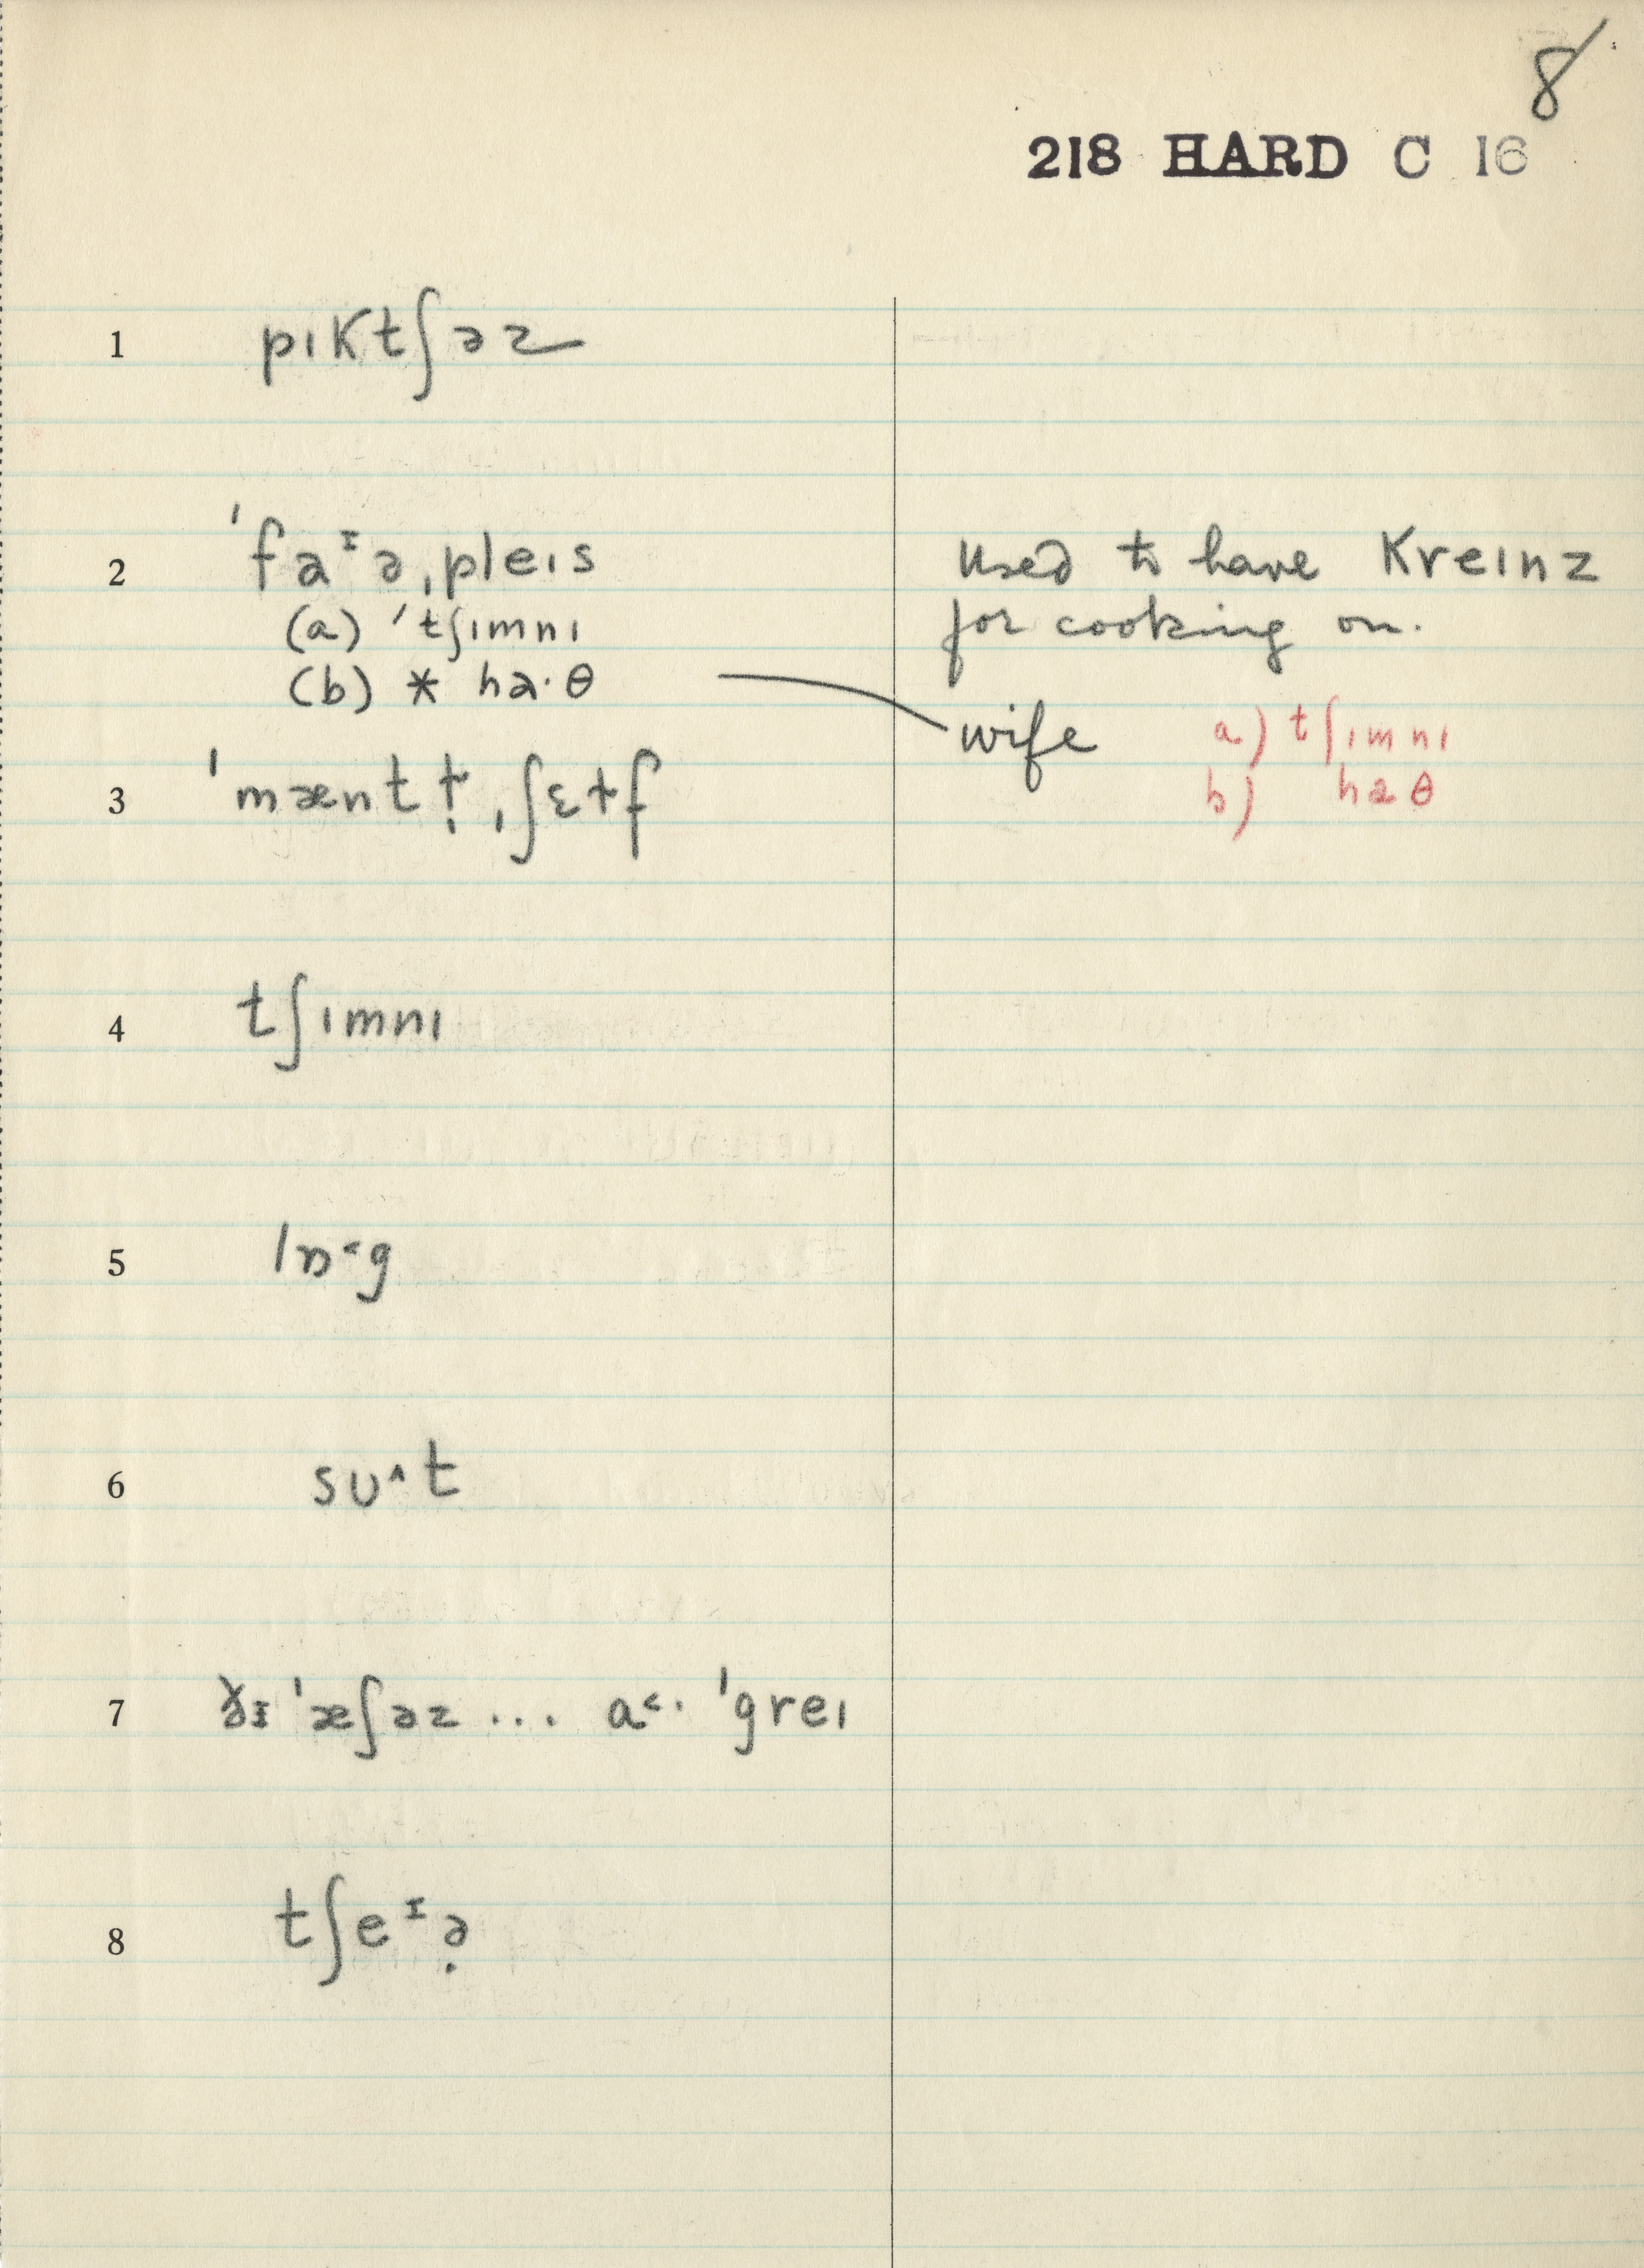 8
218 HARD C 16
1 pıKtʃəz
2 ˈfaᶦə ˌpleıs
(a) ˈtʃımnı
(b) * ha·θ
used to have Kreınz
for cooking on.
wife a) tʃımnı
b) haθ
3 ˈmæntɫ̩ ˌʃɛɫf
4 tʃımnı
5 lɒ˂g
6 sʊ˄t
7 ðɪ ˈæʃəz ... a˂· ˈgreı
8 tʃeᶦə̣